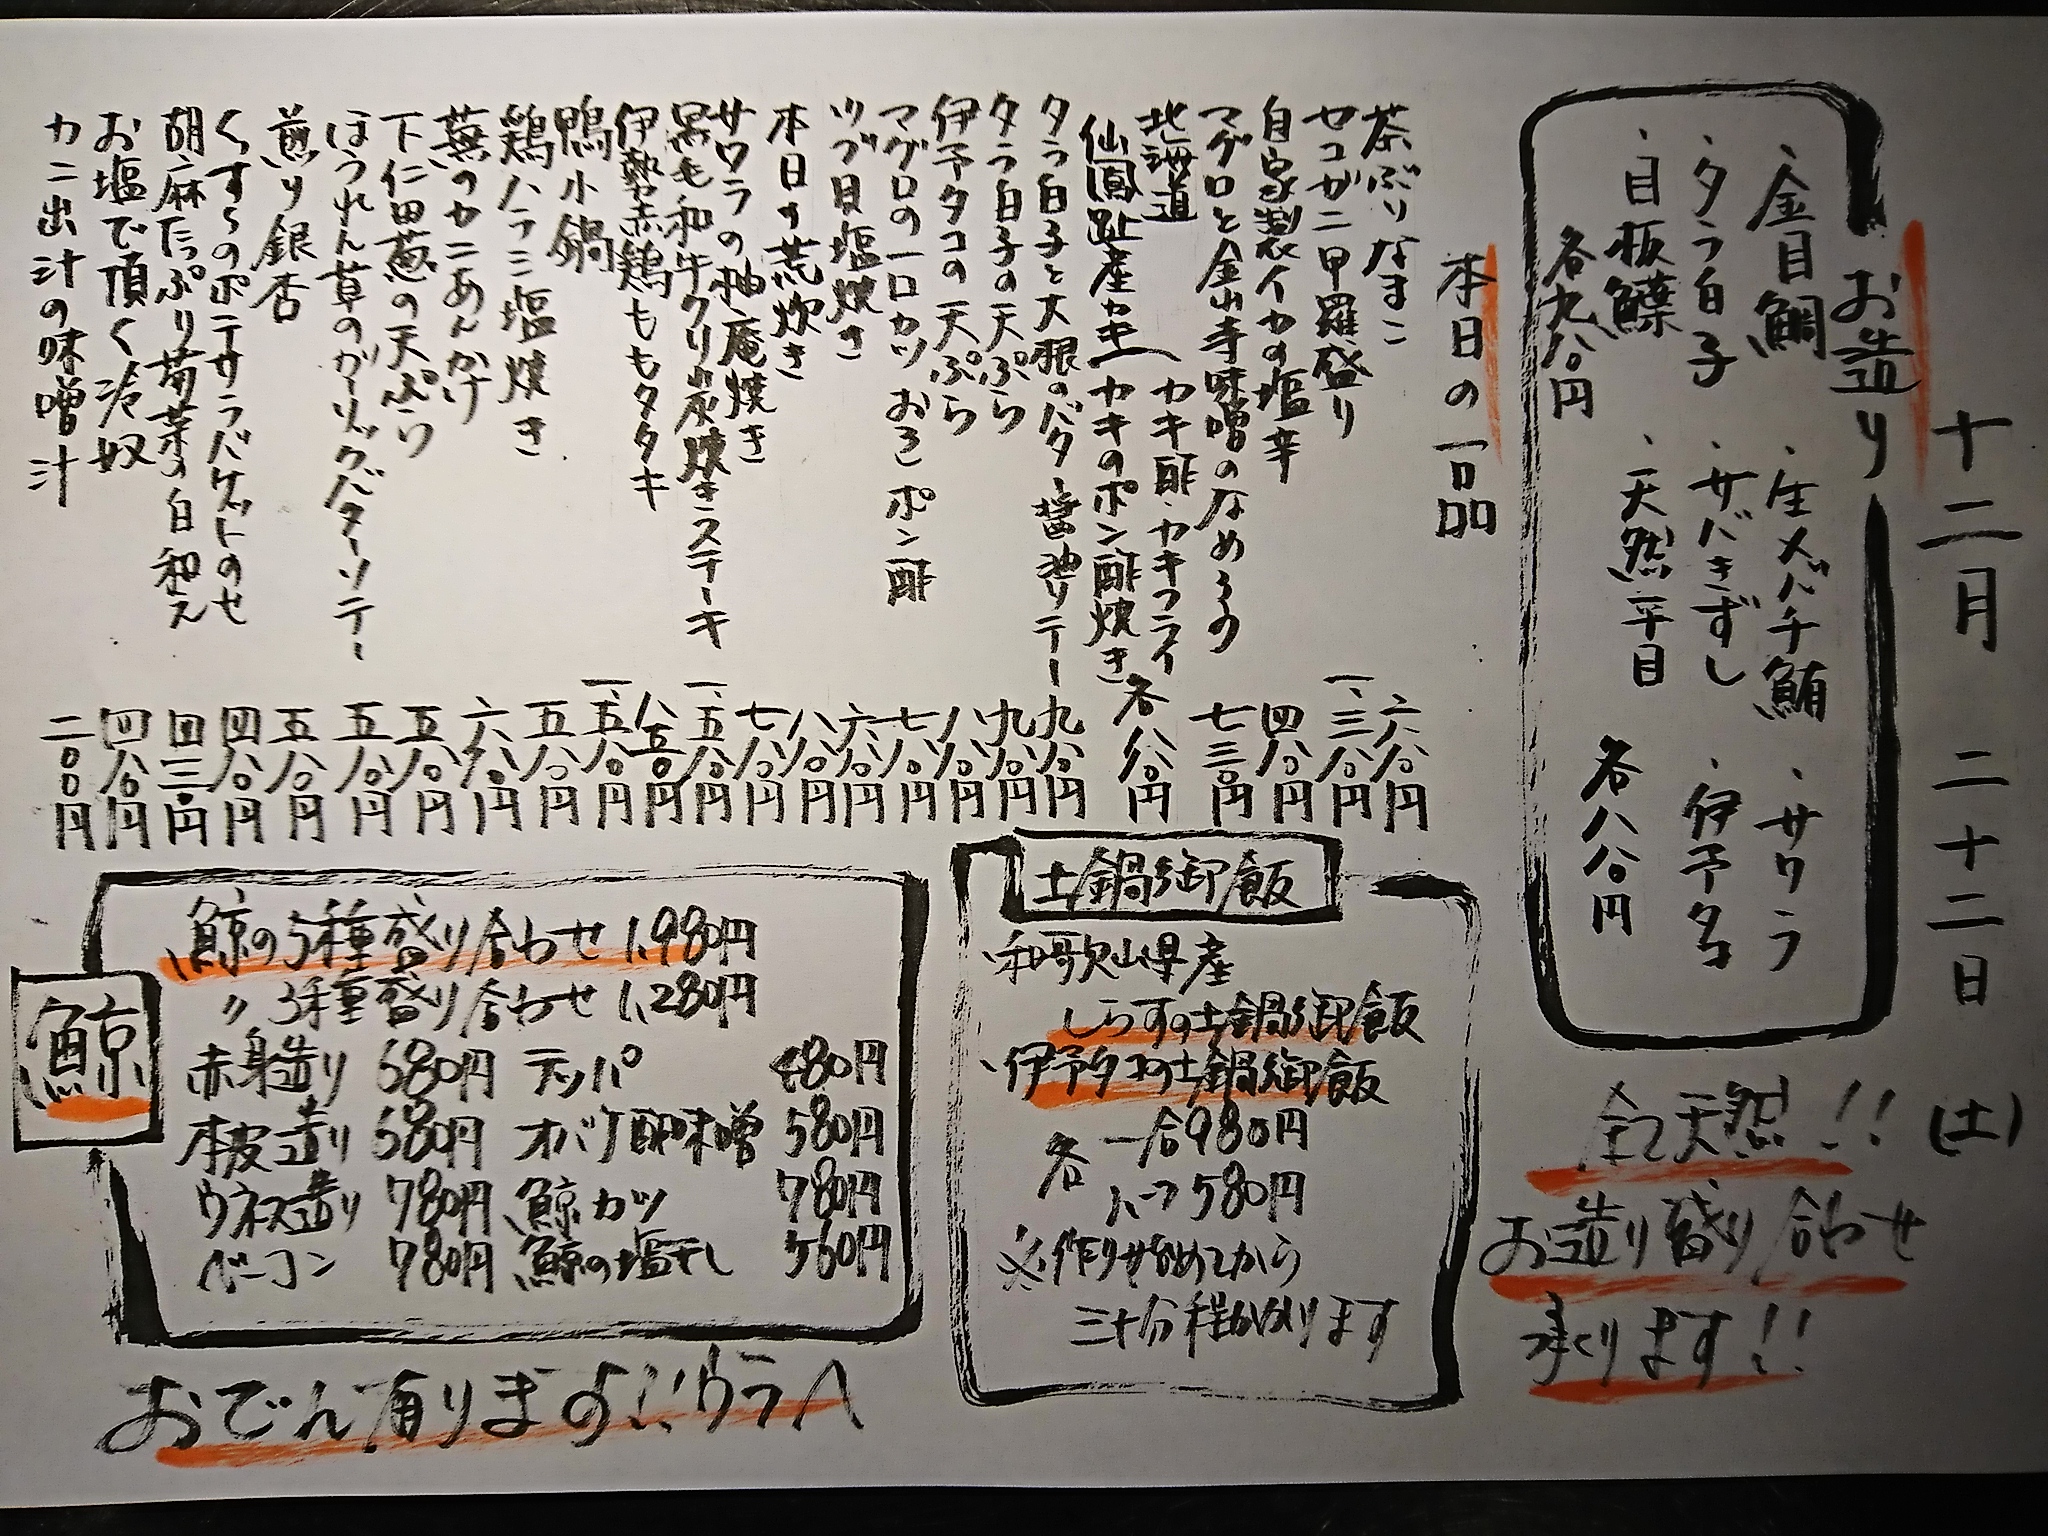 十二月 二十二日 (土)
お造り
・金目鯛 ・生メバチ鮪 ・サワラ
・タラ白子 ・サバきずし ・伊予タコ
・目板鰈 ・天然平目
各九八〇円 各八八〇円
全て天然!!
お造り盛り合わせ
承ります!!
本日の一品
茶ぶりなまこ 六八〇円
セコガニ甲羅盛り 一、三八〇円
自家製イカの塩辛 四八〇円
マグロと金山寺味噌のなめろう 七三〇円
北海道
仙鳳趾産カキ
カキ酢・カキフライ
カキのポン酢焼き 各八八〇円
タラ白子と大根のバター醤油ソテー 九八〇円
タラ白子の天ぷら 九八〇円
伊予タコの天ぷら 八八〇円
マグロの一口カツ おろしポン酢 七八〇円
ツブ貝塩焼き 六八〇円
本日の荒炊き 八八〇円
サワラの柚庵焼き 七八〇円
黒毛和牛クリ炭焼きステーキ 一、五八〇円
伊勢赤鶏ももタタキ 八五〇円
鴨小鍋 一、五八〇円
鶏ハラミ塩焼き 五八〇円
蕪のカニあんかけ 六八〇円
下仁田葱の天ぷら 五八〇円
ほうれん草のガーリックバターソテー 五八〇円
煎り銀杏 五八〇円
くすらのポテサラバケットのせ 四八〇円
胡麻たっぷり菊菜の白和え 四三〇円
お塩で頂く冷奴 四八〇円
カニ出汁の味噌汁 二〇〇円
土鍋御飯
・和歌山県産
しらすの土鍋御飯
・伊予タコの土鍋御飯
各 一合980円
ハーフ580円
※作り始めてから
三十分程かかります
鯨
鯨の5種盛り合わせ 1,980円
〃 3種盛り合わせ 1,280円
赤身造り 680円 テッパ 480円
本皮造り 680円 オバケ酢味噌 580円
ウネス造り 780円 鯨カツ 780円
ベーコン 780円 鯨の塩干し 560円
おでん有ります!!ウラへ